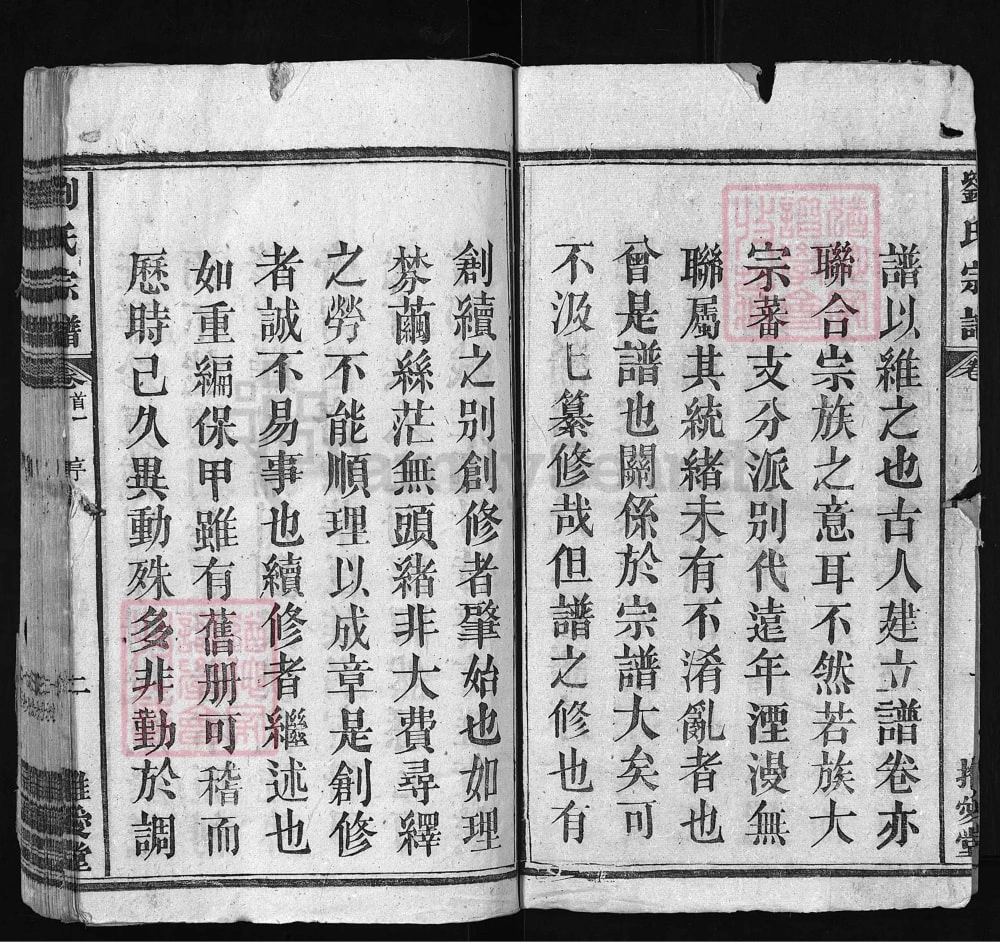 譜以維之也古人建立譜卷亦
聯合宗族之意耳不然若族大
宗蕃支分派別代遠年湮漫無
聯屬其統緒未有不淆亂者也
曾是譜也關係於宗譜大矣可
不汲汲纂修哉但譜之修也有
創續之別創修者肇始也如理
棼繭絲茫無頭緒非大費尋繹
之勞不能順理以成章是創修
者誠不易事也續修者繼述也
如重編保甲雖有舊册可稽而
歷時已久異動殊多非勤於調
劉氏宗譜
卷首一
序
二